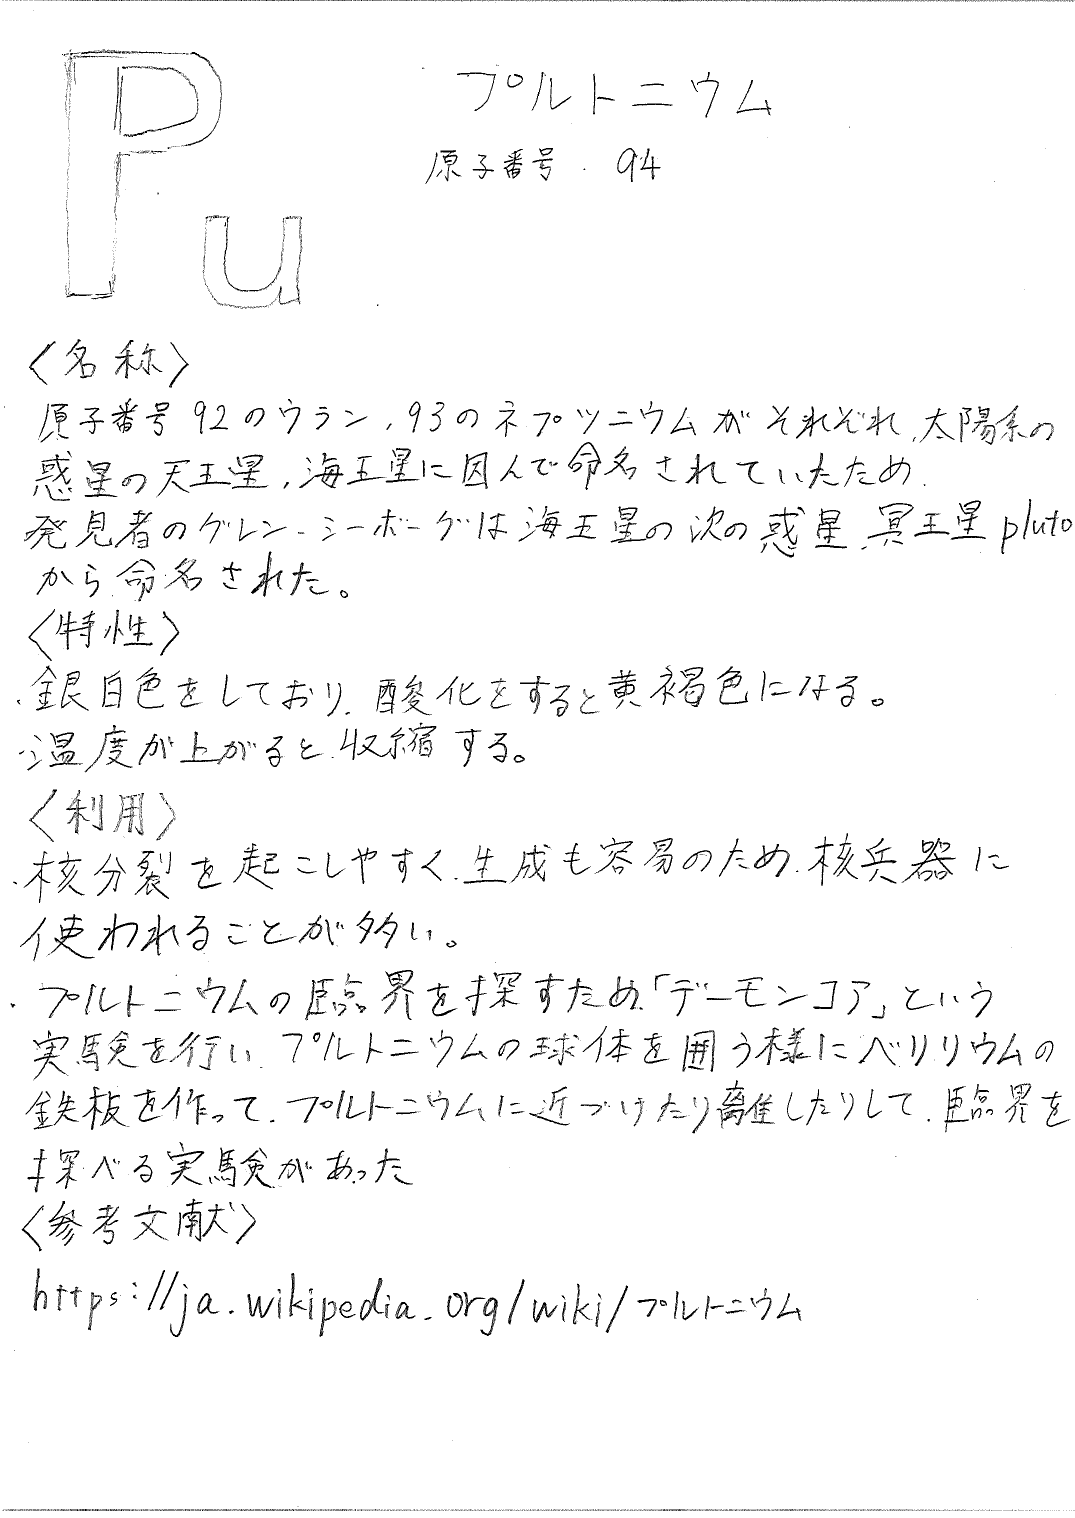 Pu
プルトニウム
原子番号 . 94
〈名称〉
原子番号92のウラン、93のネプツニウムがそれぞれ、太陽系の
惑星の天王星、海王星に因んで命名されていたため、
発見者のグレン・シーボーグは海王星の次の惑星、冥王星pluto
から命名された。
〈特性〉
・銀白色をしており、酸化をすると黄褐色になる。
・温度が上がると、収縮する。
〈利用〉
・核分裂を起こしやすく、生成も容易のため、核兵器に
使われることが多い。
・プルトニウムの臨界を探すため、「デーモンコア」という
実験を行い、プルトニウムの球体を囲う様にベリリウムの
鉄板を作って、プルトニウムに近づけたり離したりして、臨界を
探べる実験があった
〈参考文献〉
https://ja.wikipedia.org/wiki/プルトニウム